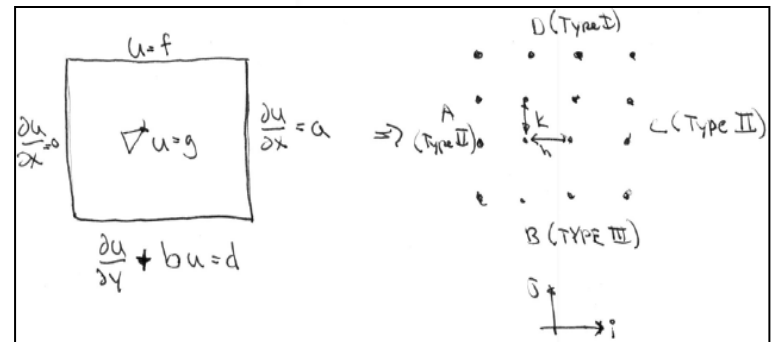 u=f
∂u/∂x=0
∇²u=g
∂u/∂x=a
∂u/∂y + bu=d
⇒
D (Type I)
A
(Type II)
k
h
C (Type II)
B (TYPE III)
j
i